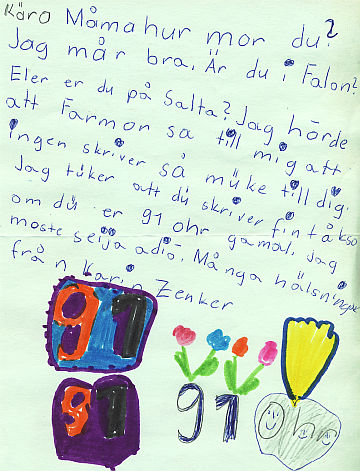 Kära Måmahur mor du?
Jag mår bra. Är du i Falon?
Eler er du på Salta? Jag hörde
att Farmor sa till mig att
ingen skriver så müke till dig.
Jag tüker att du skriver fint åkso
om du er 91 ohr gamal. jag
moste seija adiö. Många hälsningar
från Karin Zenker
91
91
91